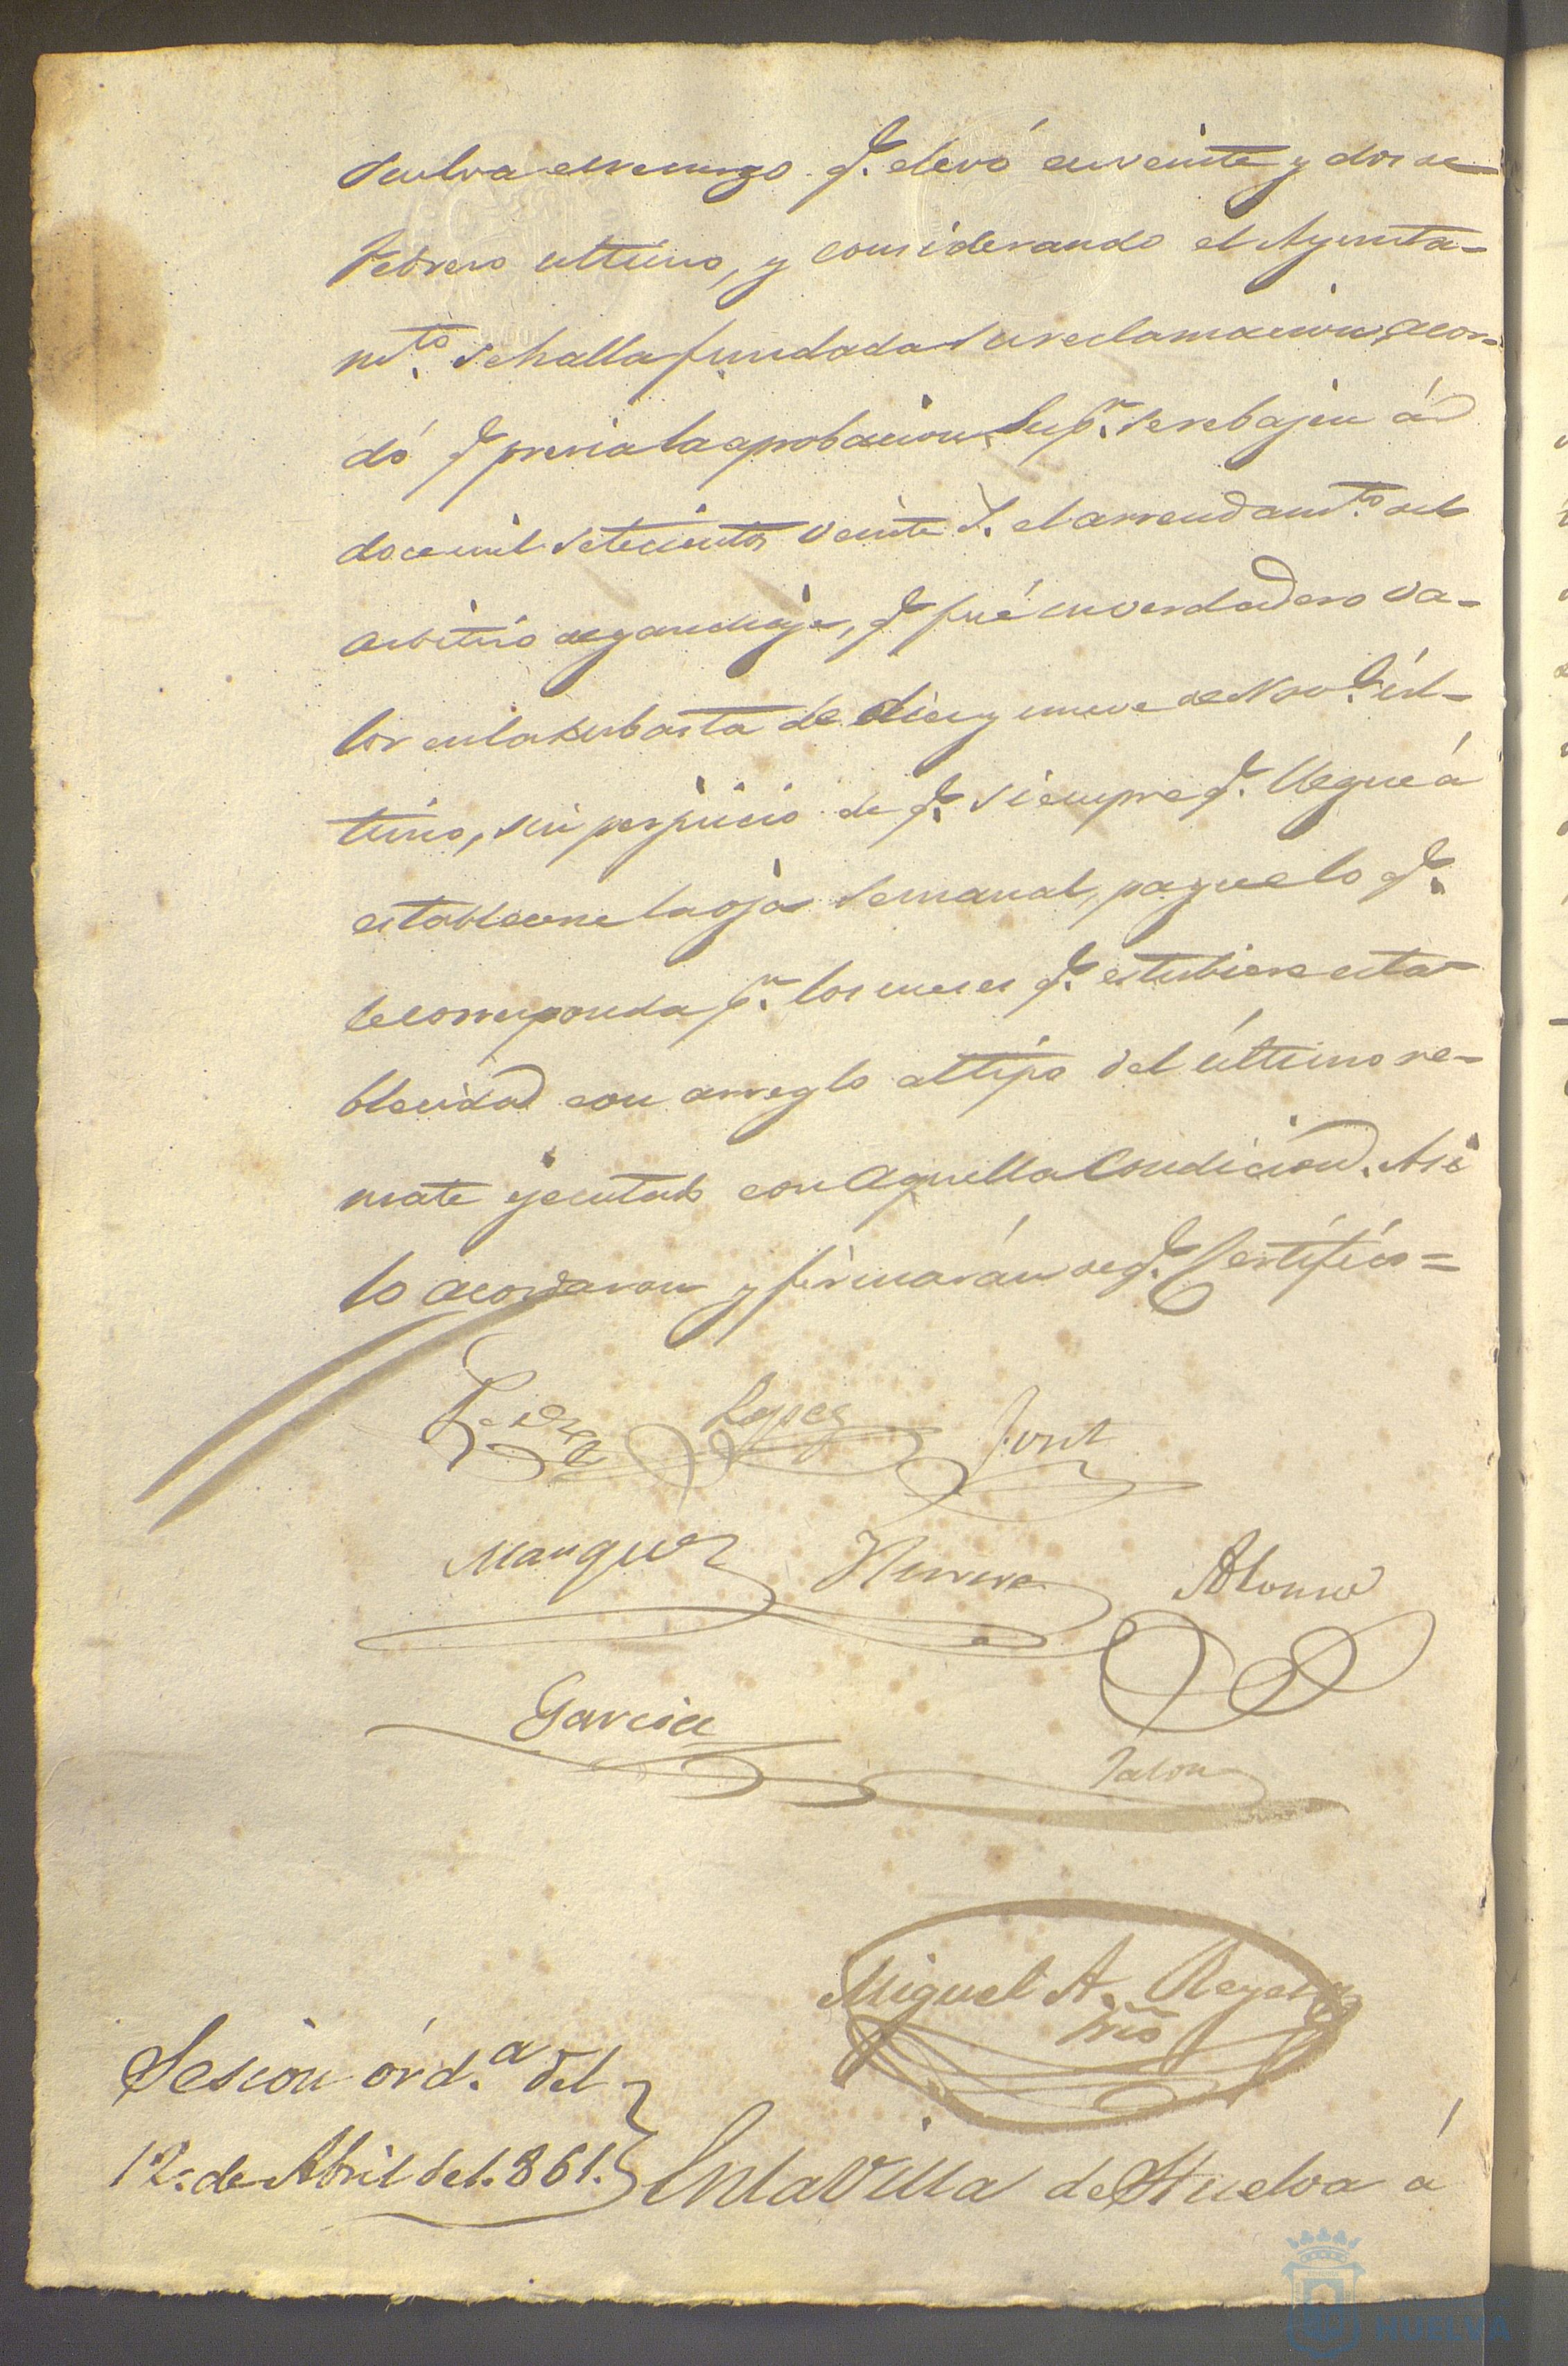 suelva el recurso q.e elevó en veinte y dos de
Febrero ultimo, y considerando el Ayunta-
mto. se halla fundada su reclamacion, acor-
dó q.e previa la aprobacion Supr. se rebajen á
doce mil setecientos veinte r. el arrendamto. del
arbitrio de ganchaje, q.e fué su verdadero va-
lor en la subasta de diez y nueve de Nov.e úl-
timo, sin perjuicio de q.e siempre q.e llegue á
establecerse la oja semanal, pague lo q.e
le corresponda pr. los meses q.e estubiere esta-
blecida con arreglo al tipo del último re-
mate ejecutado con aquella condicion. Asi
lo acordaron y firmarán de q.e Certifico=
Lopez Jont
Marquez Herrera Alonso
Garcia
Talon
Miguel A. Reyes
Srio
Sesion órd.a del
12. de Abril del. 861.
En la Villa de Huelva á
HUELVA